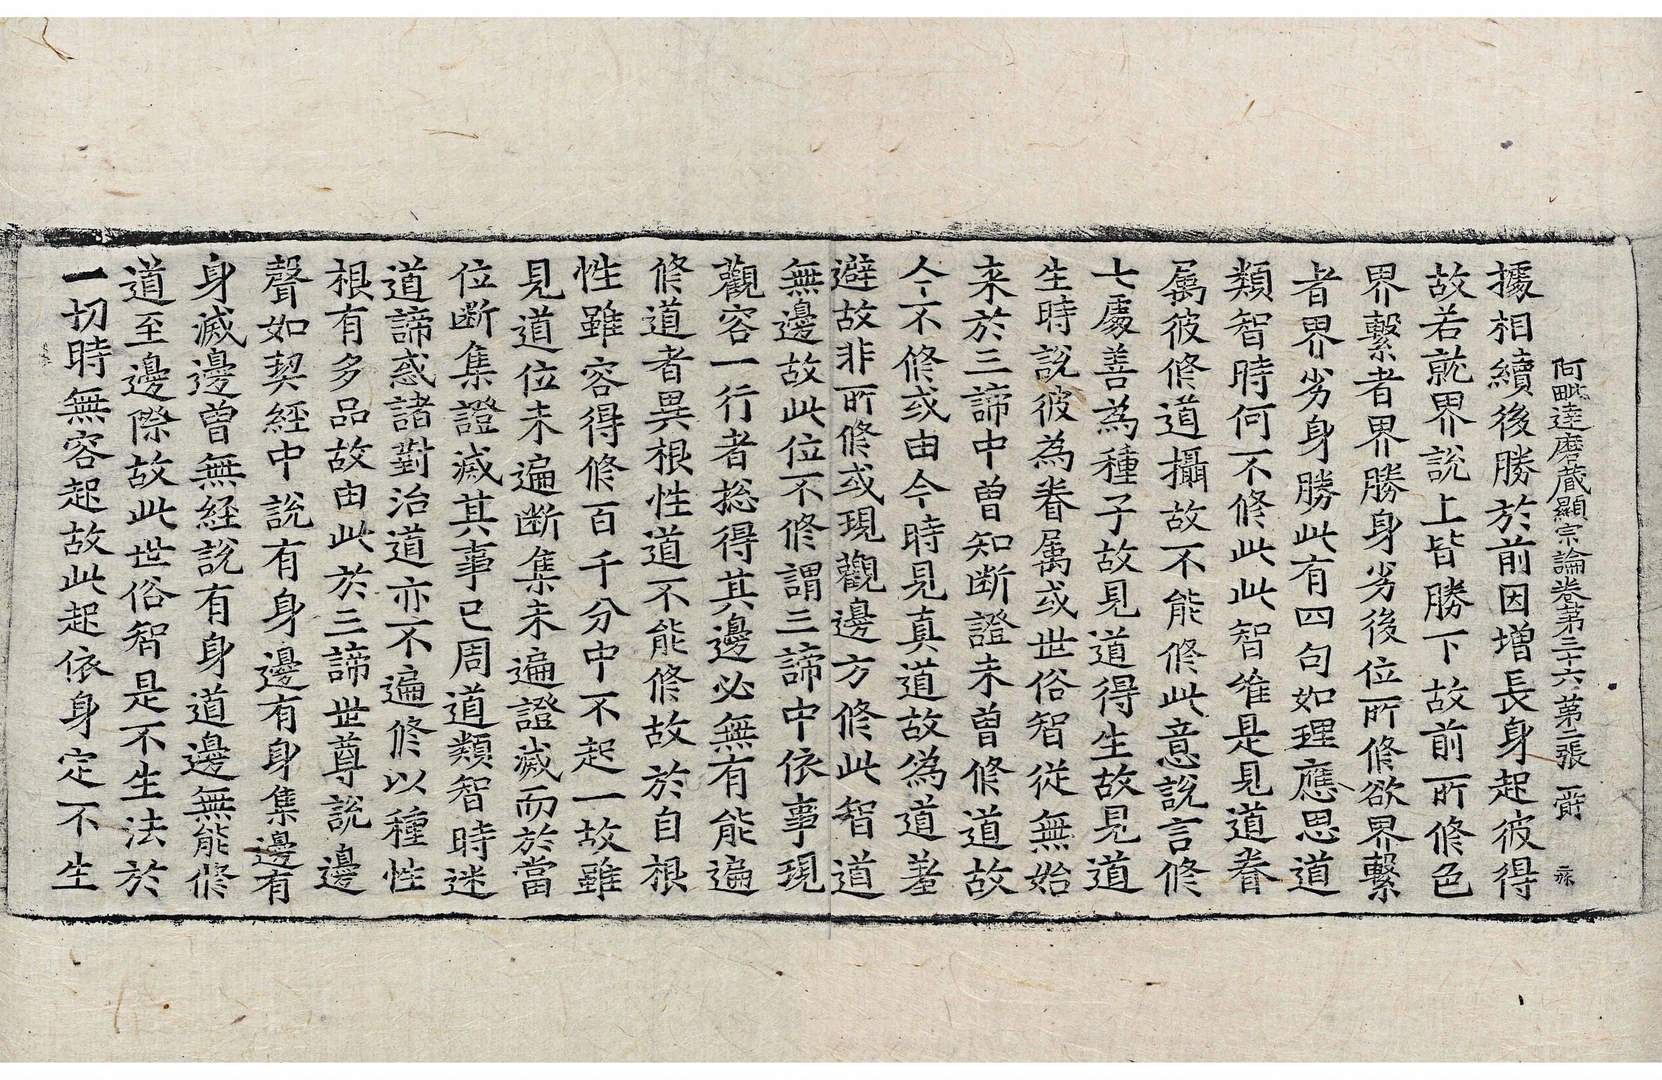 阿毗達磨藏顯宗論卷第三十六 第二張 爵
據相續後勝於前因增長身起彼得
故若就界說上皆勝下故前所修色
界繫者界勝身劣後位所修欲界繫
者界劣身勝此有四句如理應思道
類智時何不修此此智唯是見道眷
属彼修道攝故不能修此意說言修
七處善為種子故見道得生故見道
生時說彼為眷属或世俗智從無始
来於三諦中曾知断證未曾修道故
今不修或由今時見真道故為道羞
避故非所修或現觀邊方修此智道
無邊故此位不修謂三諦中依事現
觀容一行者捴得其邊必無有能遍
修道者異根性道不能修故於自根
性雖容得修百千分中不起一故雖
見道位未遍断集未遍證滅而於當
位断集證滅其事已周道類智時迷
道諦惑諸對治道亦不遍修以種性
根有多品故由此於三諦世尊說邊
聲如契經中說有身邊有身集邊有
身滅邊曾無經說有身道邊無能修
道至邊際故此世俗智是不生法於
一切時無容起故此起依身定不生